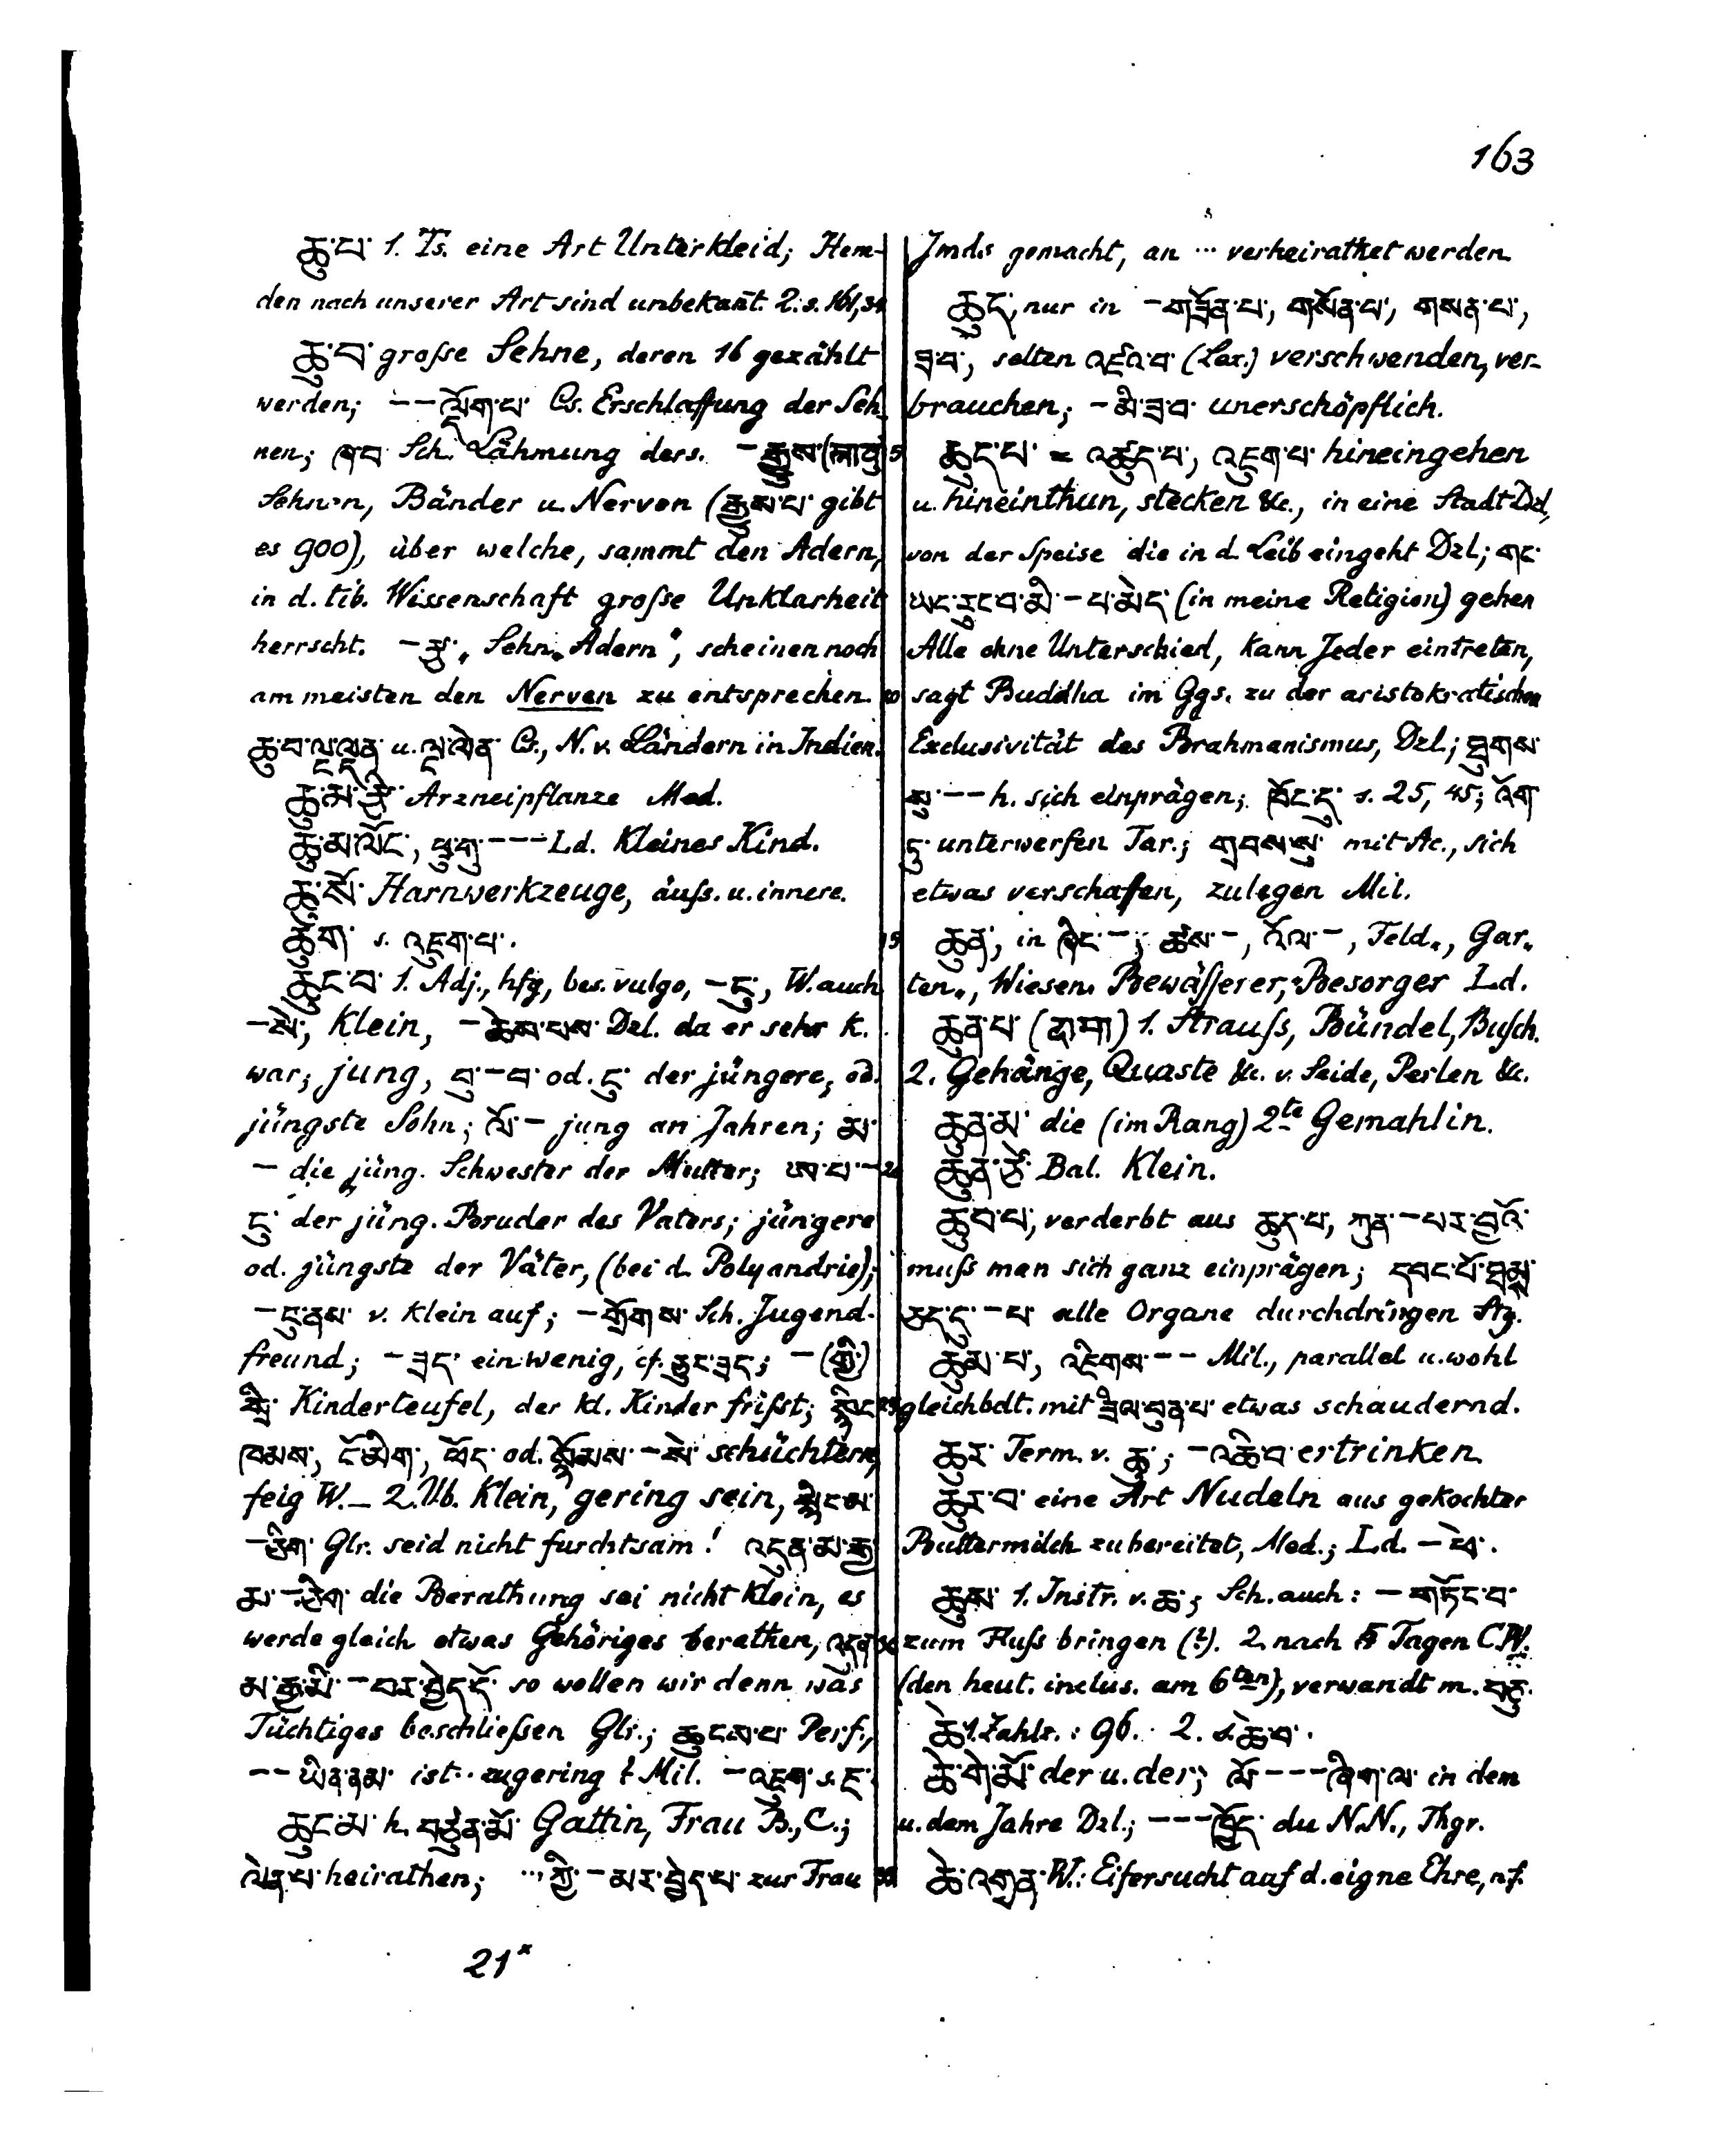 163
ཆུ་པ་ 1. Ts. eine Art Unterkleid; Hem-
den nach unserer Art sind unbekañt. 2. s. 161,34
ཆུ་བ་ groſse Sehne, deren 16 gezählt
werden; –– ལྷོག་པ་ Cs. Erschlaffung der Seh-
nen; Sch. Lähmung ders. – རྒྱུས་
Sehnen, Bänder u. Nerven (རྒྱུས་པ་ gibt
es 900), über welche, sammt den Adern,
in d. tib. Wissenschaft groſse Unklarheit
herrscht. – རྩ་ „Sehn-Adern", scheinen noch
am meisten den Nerven zu entsprechen. 10
ཆུ་བ་ u. Cs., N. v. Ländern in Indien.
ཆུ་མ་རྩི་ Arzneipflanze Med.
ཆུ་མ་ལོང་, ཕྲུ་གུ་ ––– Ld. kleines Kind.
ཆུ་སོ་ Harnwerkzeuge, äuſs. u. innere.
ཆུག་ s. འཇུག་པ་. 15
ཆུང་བ་ 1. Adj., hfg, bes. vulgo, – ངུ་, W. auch
– སེ་, klein, – ཆེས་པས་ Dzl. da er sehr k.
war; jung, བུ་ – བ་ od. ངུ་ der jüngere, od.
jüngste Sohn; ལོ་ – jung an Jahren; མ་
– die jüng. Schwester der Mutter; ཨ་པ་ – 20
ངུ་ der jüng. Bruder des Vaters; jüngere
od. jüngste der Väter, (bei d. Polyandrie);
– ངུ་ནས་ v. klein auf; – གྲོགས་ Sch. Jugend-
freund; – ཟད་ ein wenig, cf. ཅུང་ཟད་; – (གྱི་)
སྲི་ Kinderteufel, der kl. Kinder friſst; སྙིང་ 25
ཁམས་, ངོ་མིག་, ཁོང་ od. སྙོམས་ – སེ་ schüchtern,
feig W. – 2. Vb. klein, gering sein, སྙིང་མ་
– ཞིག་ Glr. seid nicht furchtsam! འདུན་མ་རྒྱ་
མ་ – ཞིག་ die Berathung sei nicht klein, es
werde gleich etwas Gehöriges berathen, འདུན་ 30
མ་རྒྱ་མི་ – བར་བྱེད་དོ་ so wollen wir denn was
Tüchtiges beschlieſsen Glr.; ཆུངས་པ་ Perf.,
–– ཡིན་ནམ་ ist·· zu gering? Mil. – འཇུག་ s. ང་
ཆུང་མ་ h. བཙུན་མོ་ Gattin, Frau B., C.;
ལེན་པ་ heirathen; ··· ཀྱི་ – མར་བྱེད་པ་ zur Frau 35
Jmds gemacht, an ··· verheirathet werden.
ཆུད་, nur in – གཟོན་པ་, གསོན་པ་, གསན་པ་,
ཟ་བ་, selten འཛའ་བ་ (Lex.) verschwenden, ver-
brauchen; – མི་ཟ་བ་ unerschöpflich.
ཆུད་པ་ = འཚུད་པ་, འཇུག་པ་ hineingehen
u. hineinthun, stecken &c., in eine Stadt Dzl,
von der Speise die in d. Leib eingeht Dzl; གང་
ཡང་རུང་བ་མི་ – པ་མེད་ (in meine Religion) gehen
Alle ohne Unterschied, kann Jeder eintreten,
sagt Buddha im Ggs. zu der aristokratischen
Exclusivität des Brahmanismus, Dzl; ཐུགས་
སུ་ –– h. sich einprägen; ཁོང་དུ་ s. 25, 45; འོག་
ཏུ་ unterwerfen Tar.; གྲབས་སུ་ mit Ac., sich
etwas verschaffen, zulegen Mil.
ཆུན་, in ཞིང་ –; ཚས་ –, འོལ་ –, Feld-, Gar-
ten-, Wiesen-Bewäſſerer, Besorger Ld.
ཆུན་པ་ 1. Strauſs, Bündel, Buſch.
2. Gehänge, Quaste &c. v. Seide, Perlen &c.
ཆུན་མ་ die (im Rang) 2te Gemahlin.
ཆུན་ཙེ་ Bal. klein.
ཆུབ་པ་, verderbt aus ཆུད་པ་, ཀུན་ – པར་བྱའོ་
muſs man sich ganz einprägen; དབང་པོ་ཐམས་
ཅད་དུ་ – པ་ alle Organe durchdringen Stg.
ཆུམ་པ་, འཇིགས་ –– Mil., parallel u. wohl
gleichbdt. mit ཟིལ་བུན་པ་ etwas schaudernd.
ཆུར་ Term. v. ཆུ་; – འཆི་བ་ ertrinken.
ཆུར་བ་ eine Art Nudeln aus gekochter
Buttermilch zubereitet, Med.; Ld. – ཕེ་.
ཆུས་ 1. Instr. v. ཆུ་; Sch. auch: – གཏོང་བ་
zum Fluſs bringen (?). 2. nach 5 Tagen C.W.
(den heut. inclus. am 6ten), verwandt m. བཅུ་.
ཆེ་ 1. Zahlz.: 96. 2. s. ཆེ་བ་.
ཆེ་གེ་མོ་ der u. der; ལོ་ ––– ཞིག་ལ་ in dem
u. dem Jahre Dzl; ––– ཁྱོད་ du N.N., Thgr.
ཆེ་འགྲན་ W.: Eifersucht auf d. eigne Ehre, nf.
21*